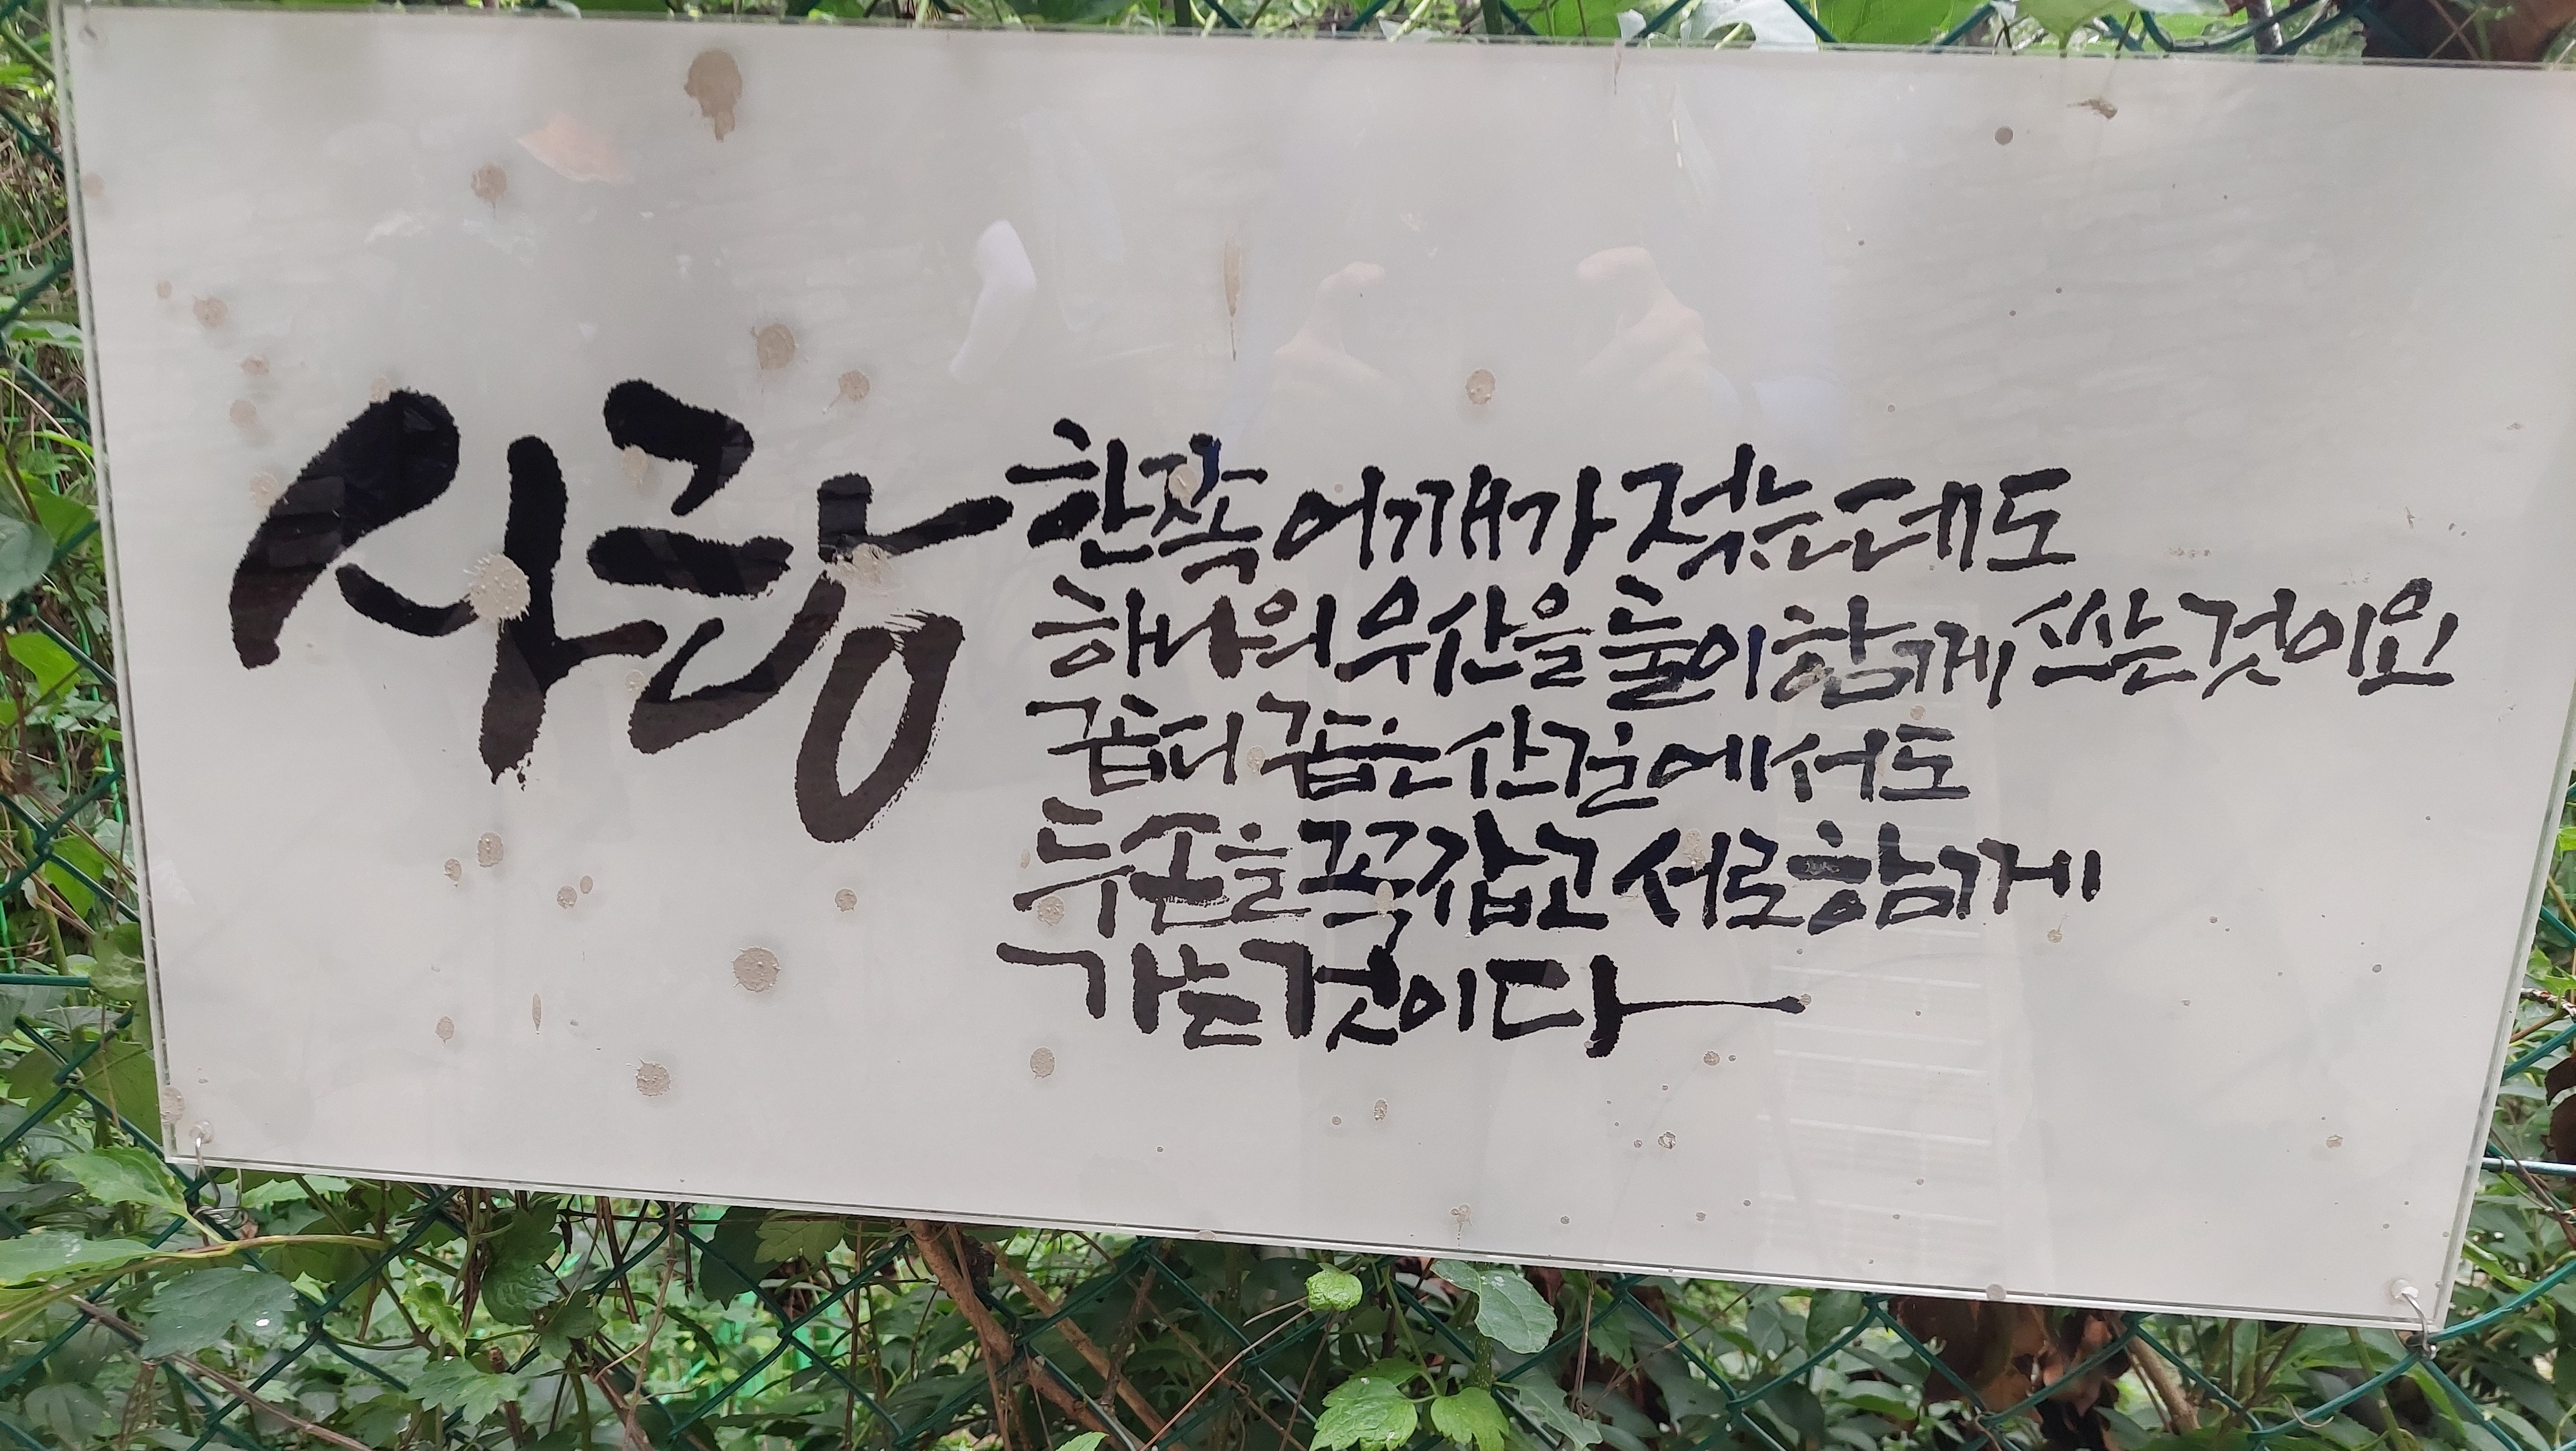 사랑
한쪽 어깨가 젖는데도
하나의 우산을 둘이 함께 쓰는 것이요
굽디 굽은 산길에서도
두손을 꼭 잡고 서로 함께
가는 것이다